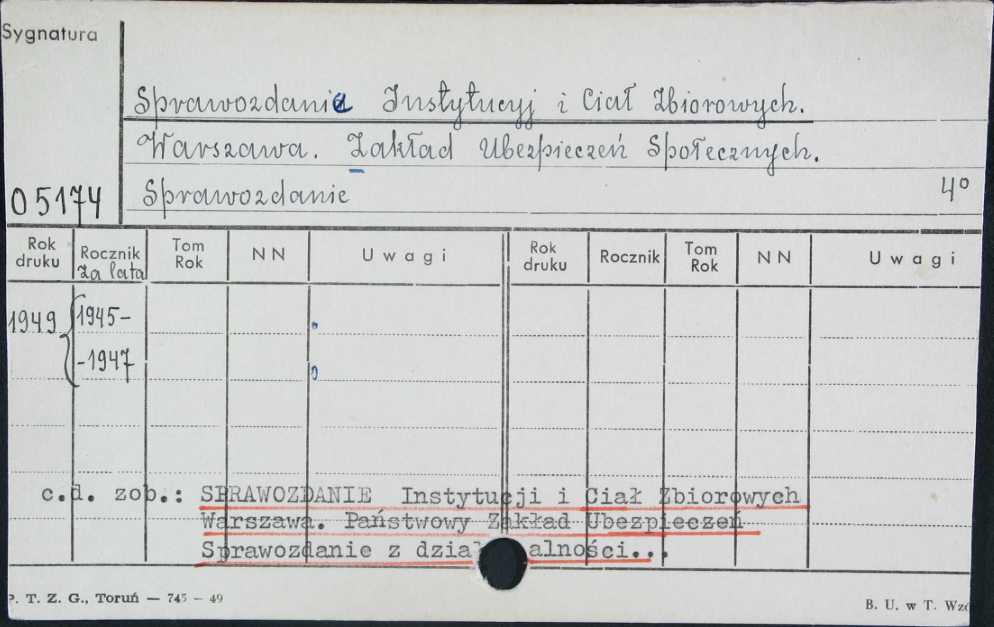 Sygnatura
Sprawozdanie Instytucyj i Ciał Zbiorowych.
Warszawa. Zakład Ubezpieczeń Społecznych.
05174 Sprawozdanie 4º
Rok druku Rocznik za lata Tom Rok NN Uwagi Rok druku Rocznik Tom Rok NN Uwagi
1949 1945-
-1947
c.d. zob.: SPRAWOZDANIE Instytucji i Ciał Zbiorowych
Warszawa. Państwowy Zakład Ubezpieczeń
Sprawozdanie z dział alności...
P. T. Z. G., Toruń — 745 — 49
B. U. w T.